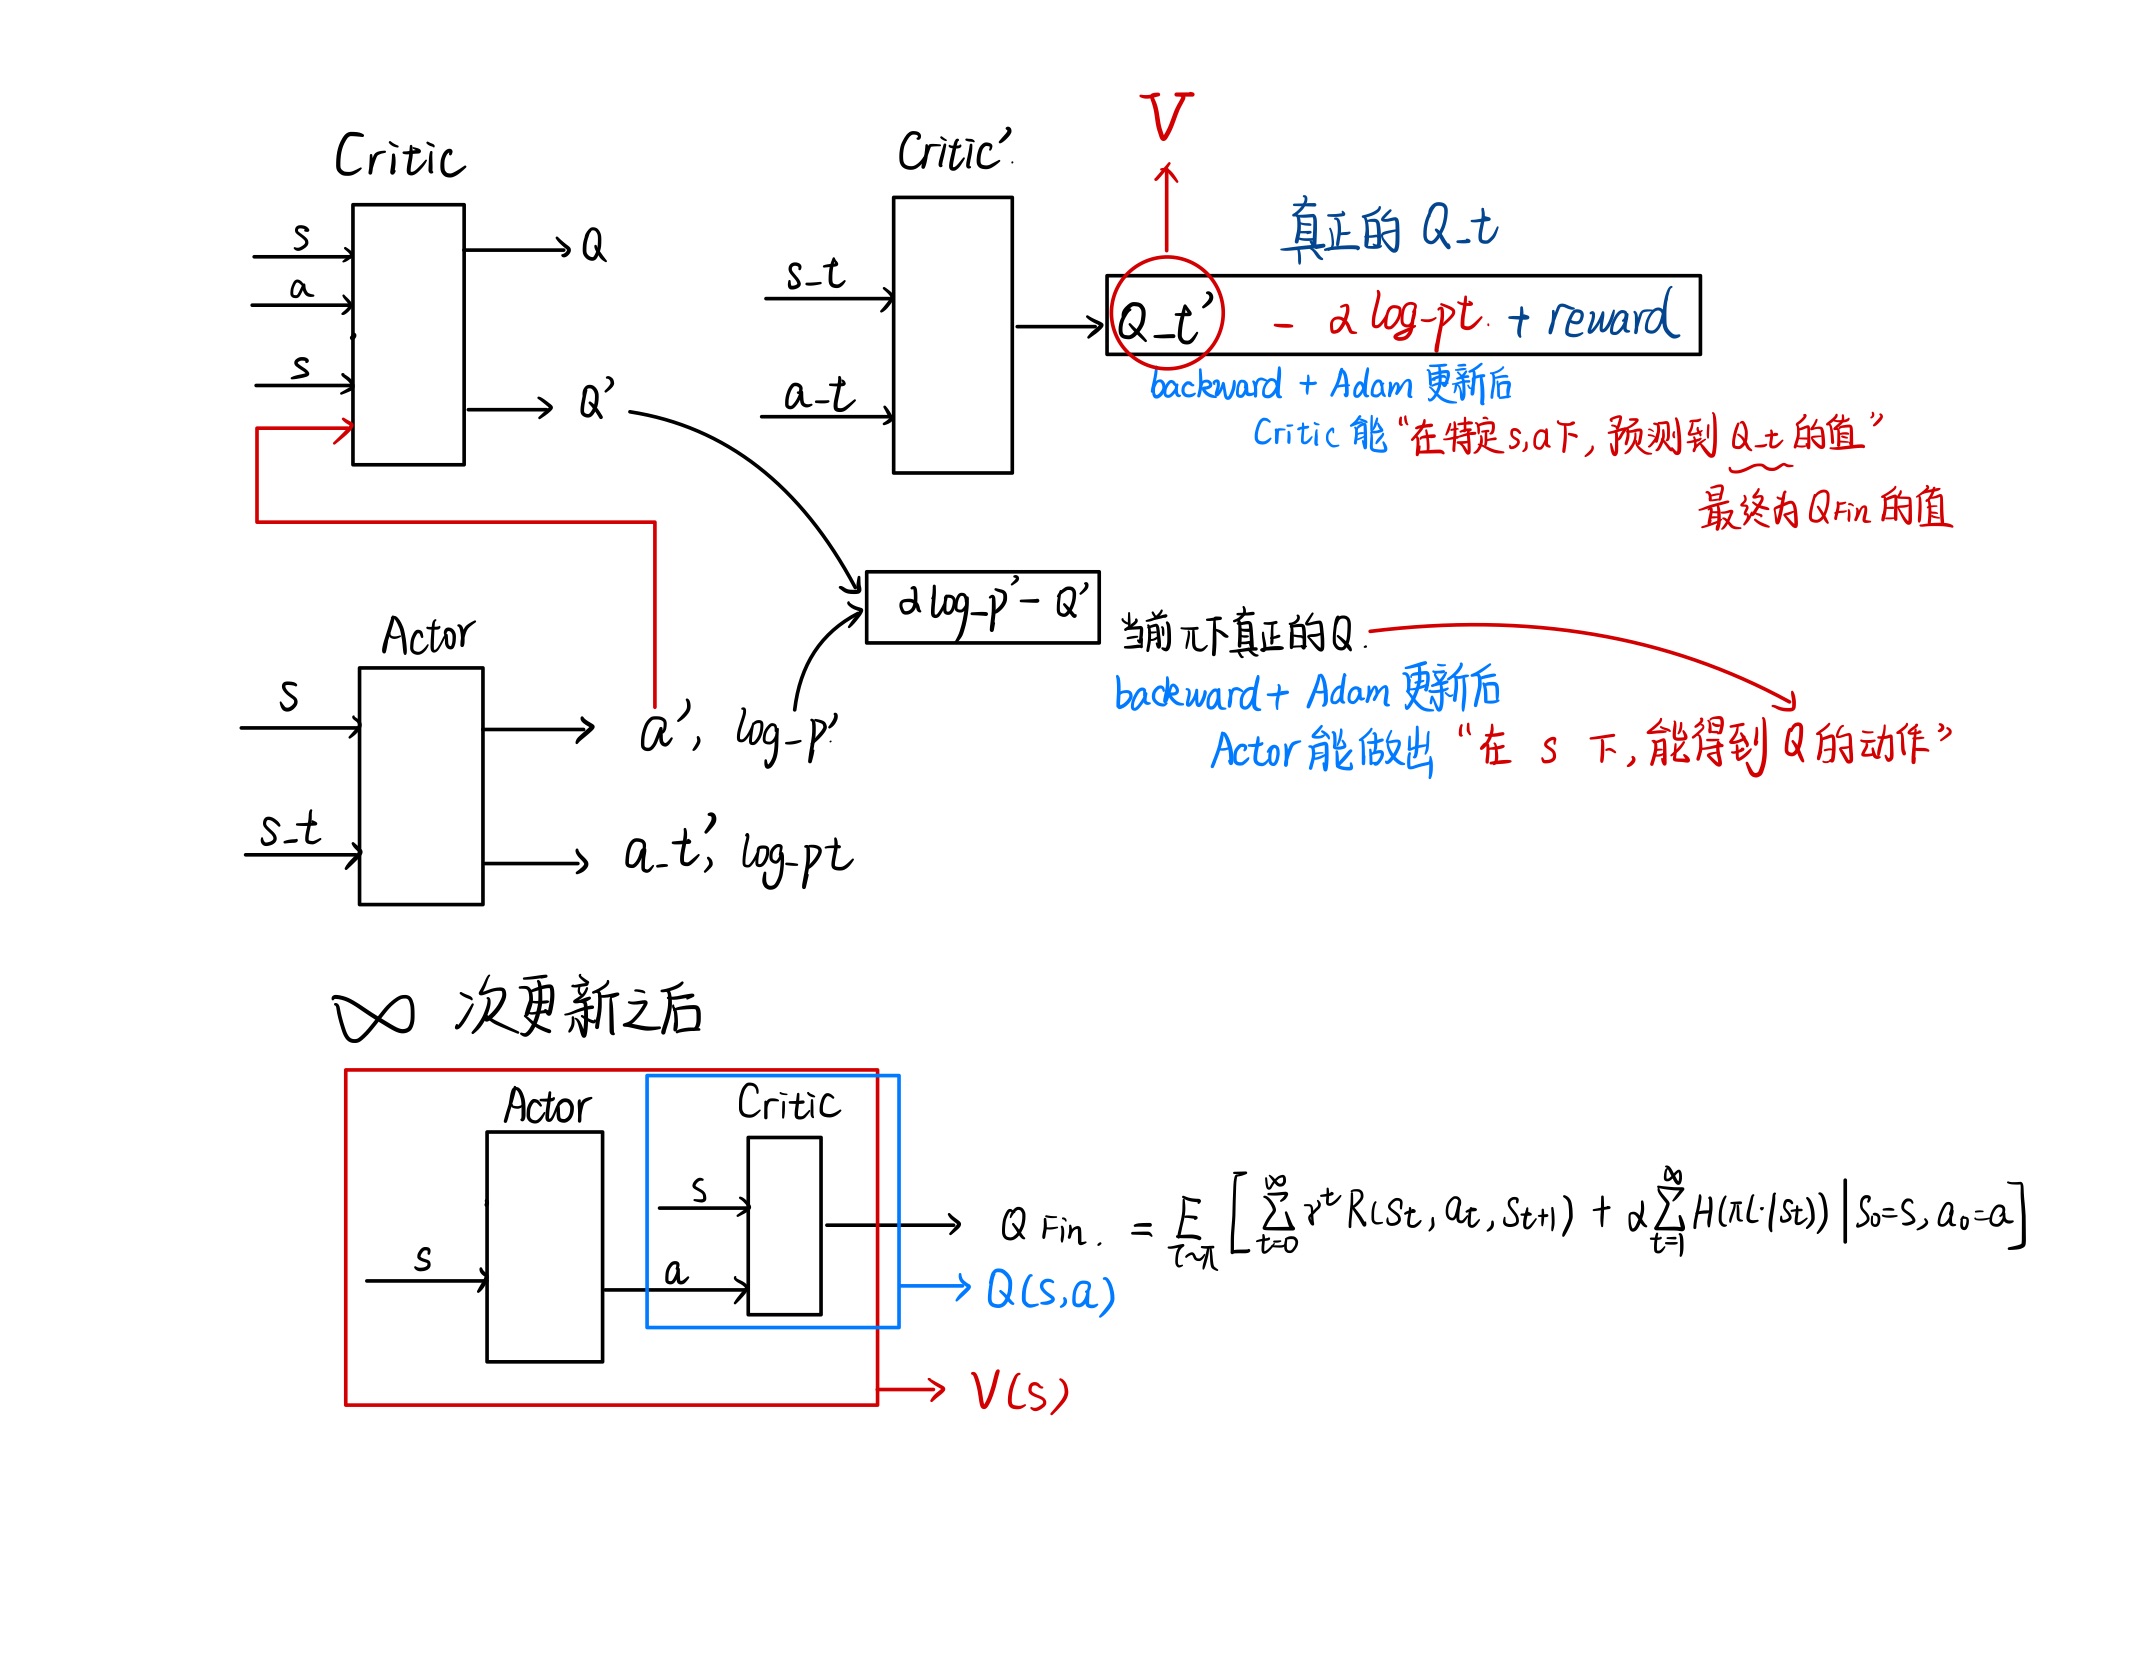 V
Critic
Critic'.
s
a
s
Q
Q'
s_t
a_t
真正的 Q_t
Q_t' - α log_pt. + reward
backward + Adam 更新后
Critic 能 “在特定 s,a 下, 预测到 Q_t 的值”
最终为 QFin 的值
α log_p' - Q'
当前 π 下真正的 Q.
backward + Adam 更新后
Actor 能做出 “在 s 下, 能得到 Q 的动作”
Actor
s
s_t
a', log_p'.
a_t', log_pt
∞ 次更新之后
Actor
Critic
s
s
a
Q Fin. = E τ~π [ ∑ t=0 ∞ γ^t R(St, at, St+1) + α ∑ t=1 ∞ H(π(·|St)) | S0=S, a0=a ]
Q(s,a)
V(s)